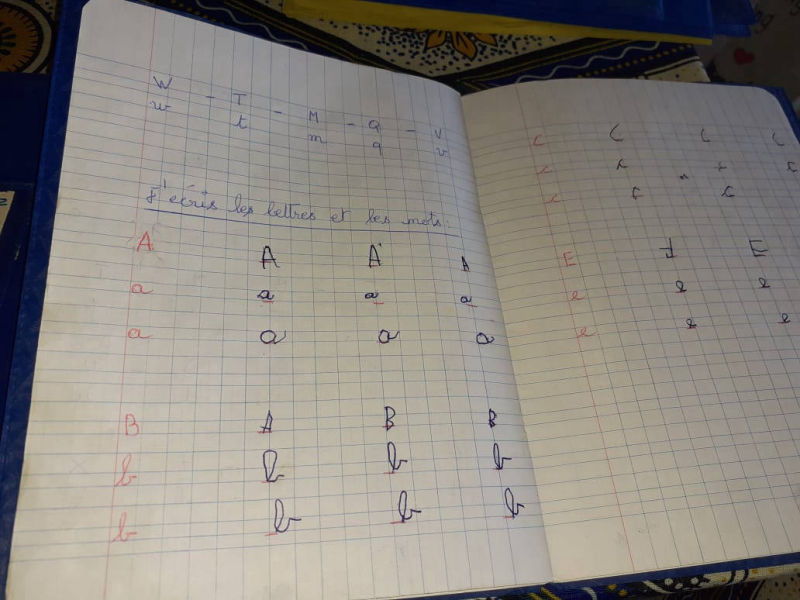 W - T - M - Q - V
w t m q v
J'écris les lettres et les mots:
A A A A
a a a a
a a a a
B A B B
b b b b
b b b b
c C C C
c c c c
c c c
E F E
e e e
e e e